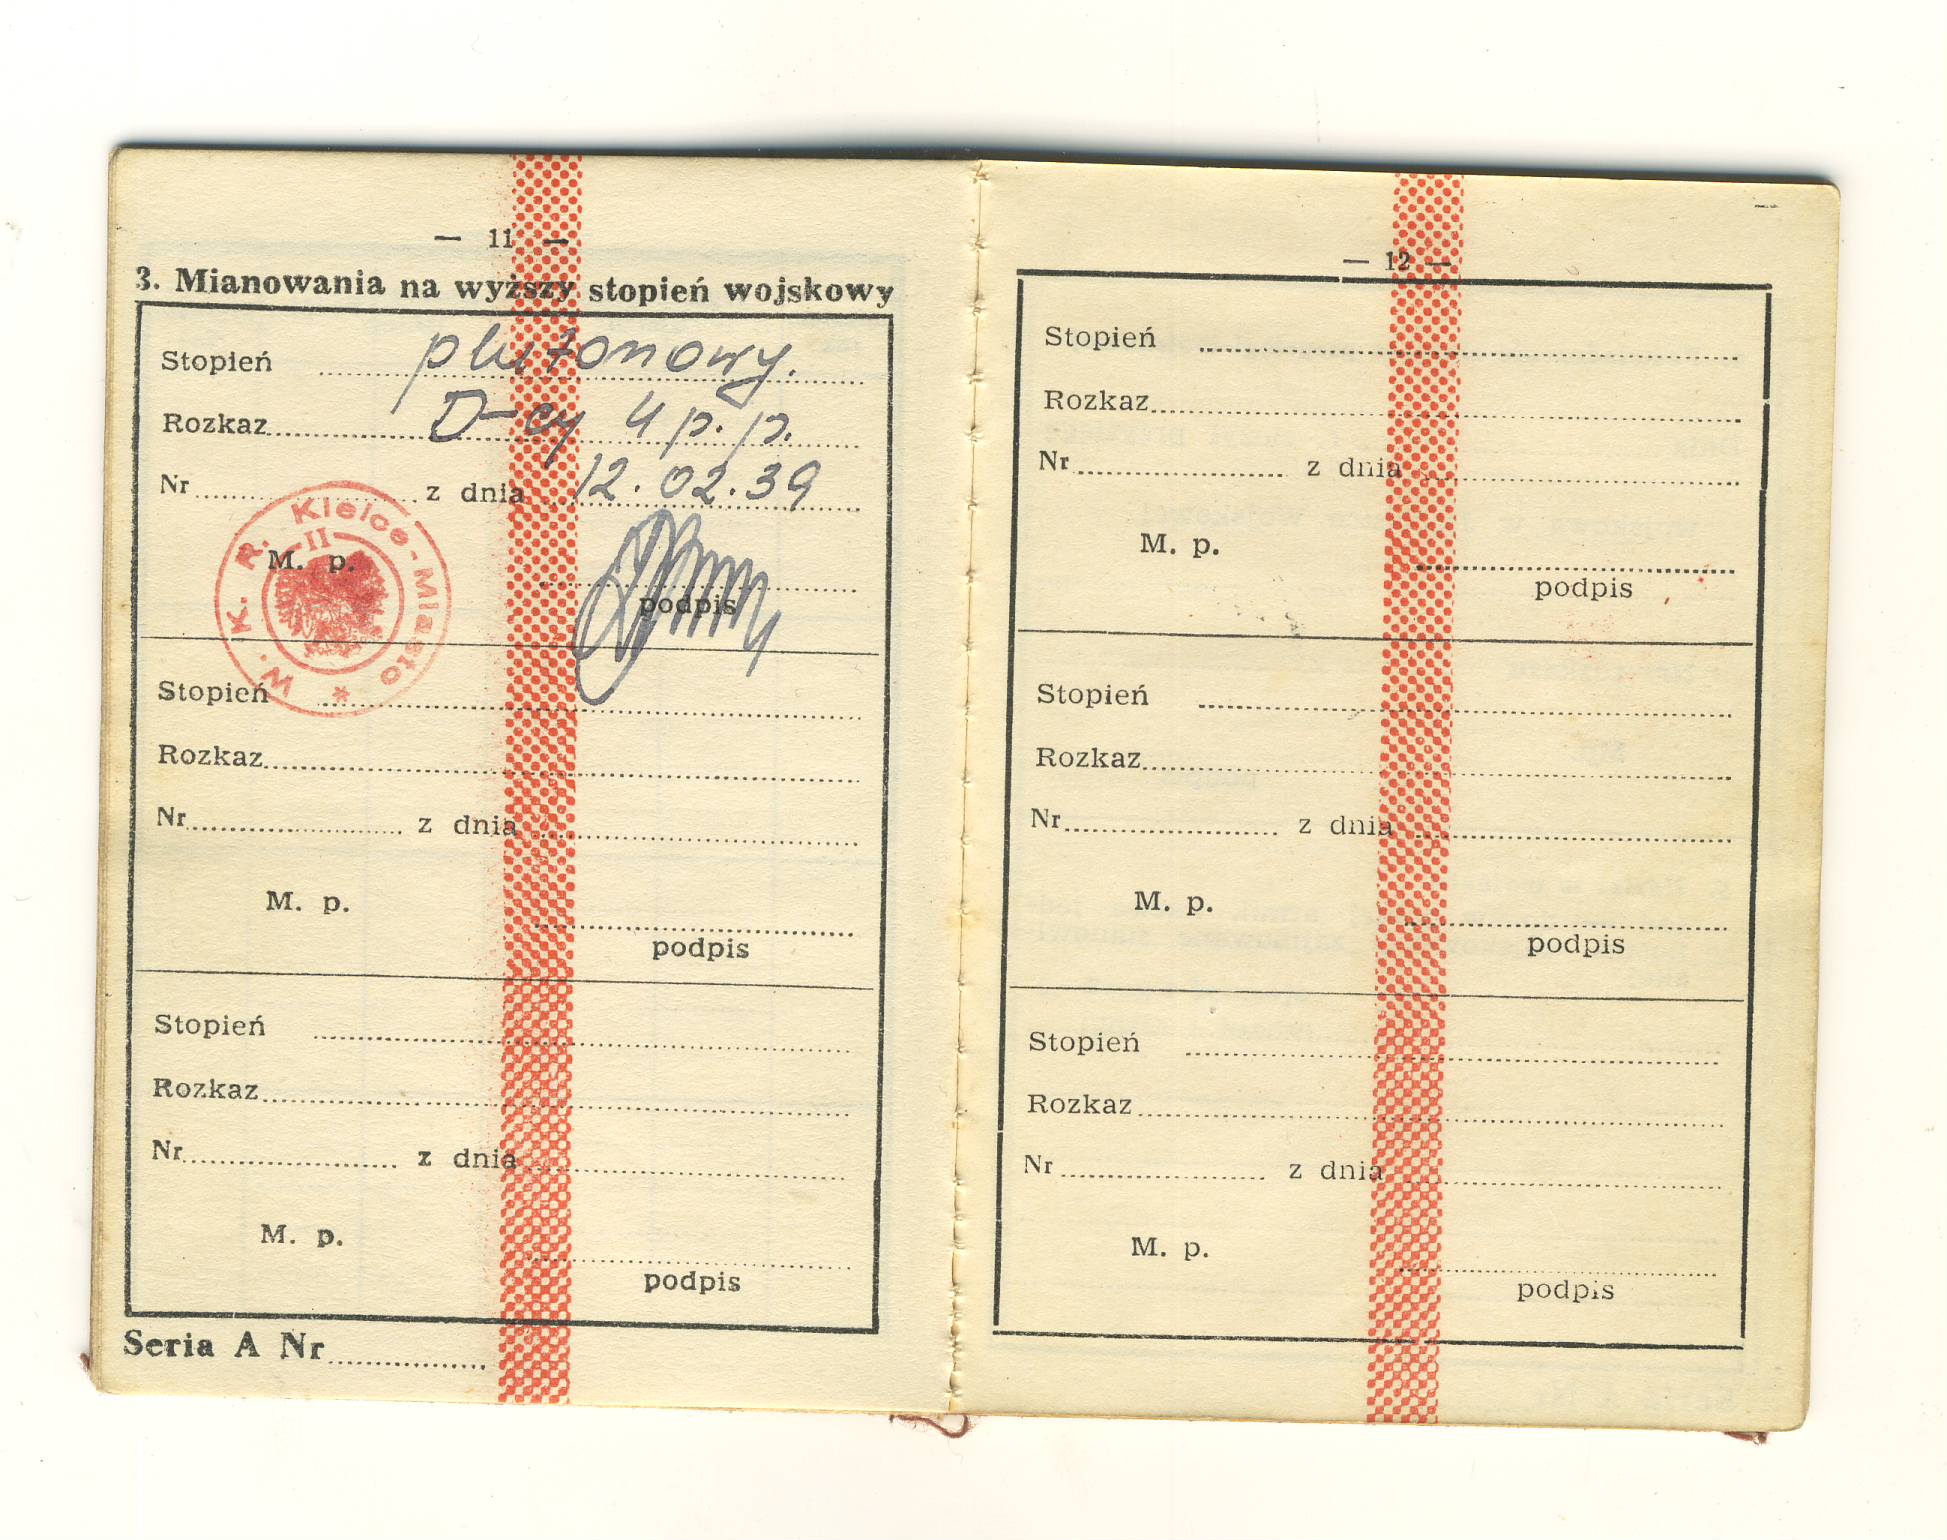 — 11 —
3. Mianowania na wyższy stopień wojskowy
Stopień plutonowy.
Rozkaz D-cy 4 p.p.
Nr z dnia 12.02.39
M. p.
podpis
W. K. R. Kielce-Miasto *
II
Stopień
Rozkaz
Nr z dnia
M. p.
podpis
Stopień
Rozkaz
Nr z dnia
M. p.
podpis
Seria A Nr
— 12 —
Stopień
Rozkaz
Nr z dnia
M. p.
podpis
Stopień
Rozkaz
Nr z dnia
M. p.
podpis
Stopień
Rozkaz
Nr z dnia
M. p.
podpis